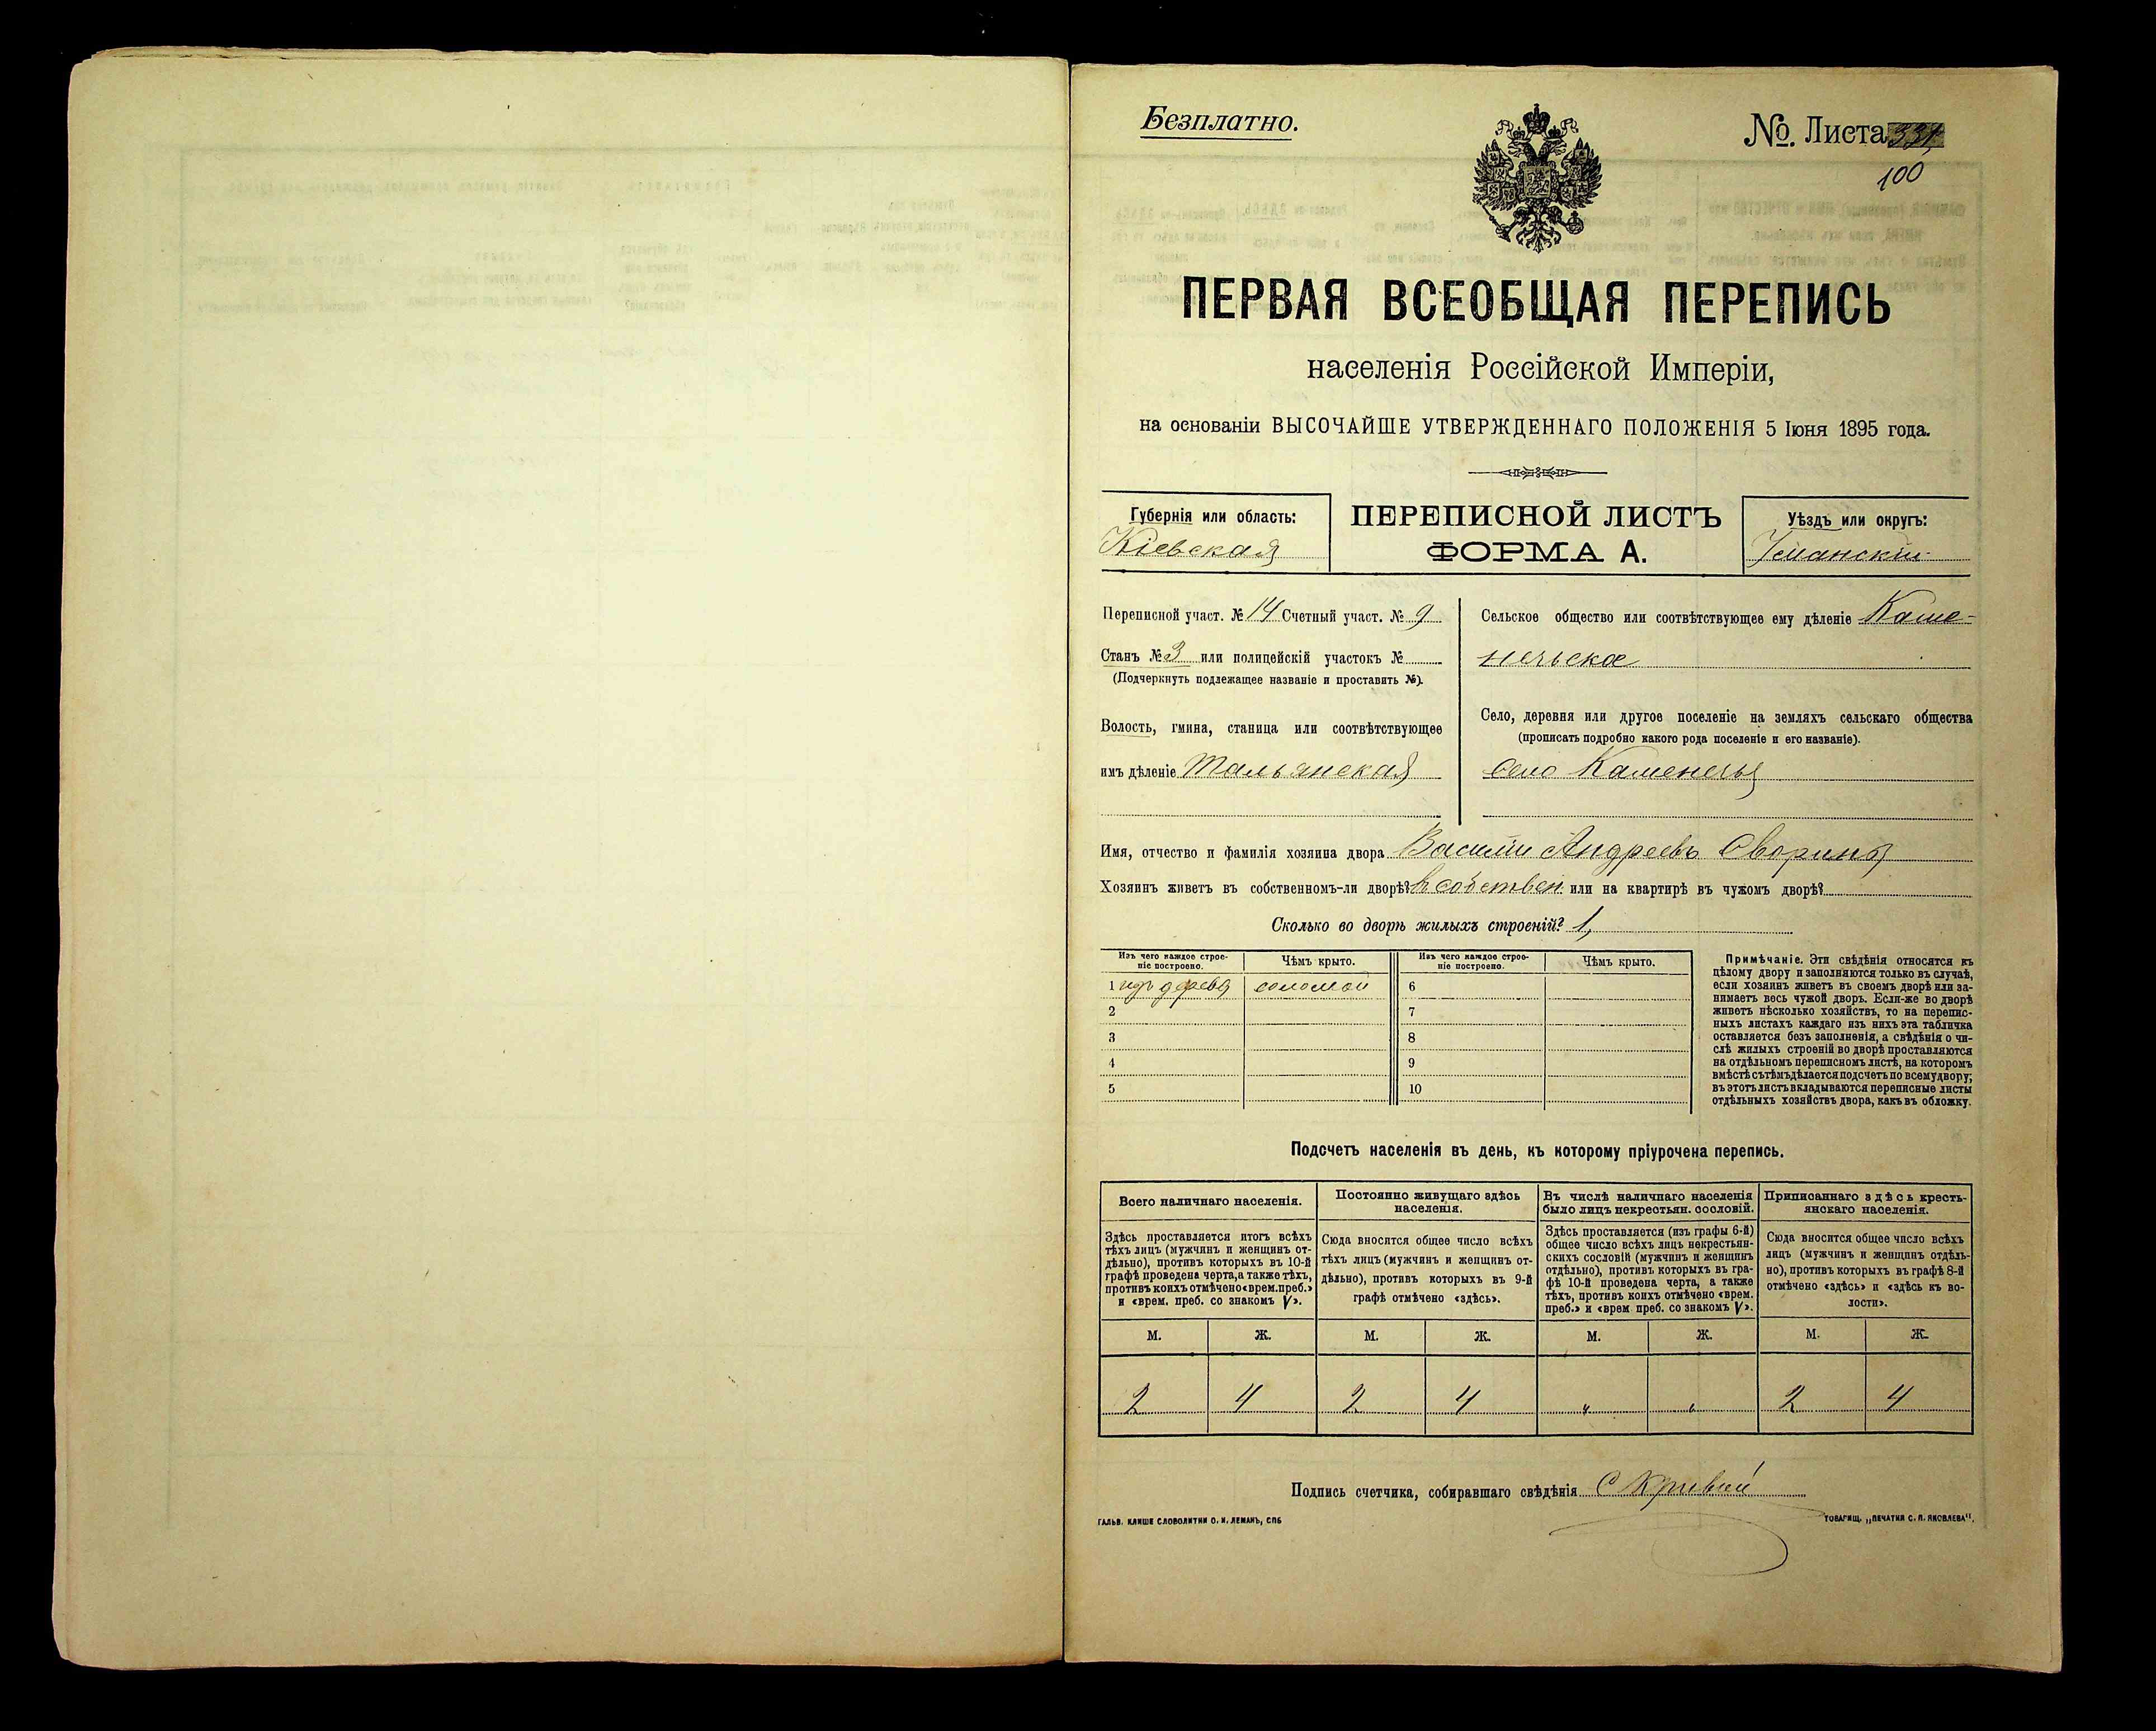 Безплатно.
№. Листа 331,
100
ПЕРВАЯ ВСЕОБЩАЯ ПЕРЕПИСЬ
населенія Россійской Имперіи,
на основаніи ВЫСОЧАЙШЕ УТВЕРЖДЕННАГО ПОЛОЖЕНІЯ 5 Іюня 1895 года.
Губернія или область:
Кіевская
ПЕРЕПИСНОЙ ЛИСТЪ
ФОРМА А.
Уѣздъ или округъ:
Уманскій
Переписной участ. № 14 Счетный участ. № 9
Станъ № 3 или полицейскій участокъ №
(Подчеркнуть подлежащее названіе и проставить №).
Волость, гмина, станица или соотвѣтствующее
имъ дѣленіе Тальянская
Сельское общество или соотвѣтствующее ему дѣленіе Каме-
нечьское
Село, деревня или другое поселеніе на земляхъ сельскаго общества
(прописать подробно какого рода поселеніе и его названіе).
село Каменечье
Имя, отчество и фамилія хозяина двора Василій Андреевъ
Хозяинъ живетъ въ собственномъ-ли дворѣ? в собствен. или на квартирѣ въ чужомъ дворѣ?
Сколько во дворѣ жилыхъ строеній? 1,
Изъ чего каждое строе-
ніе построено.
Чѣмъ крыто.
Изъ чего каждое строе-
ніе построено.
Чѣмъ крыто.
1 изъ дерева соломой 6
2 7
3 8
4 9
5 10
Примѣчаніе. Эти свѣдѣнія относятся къ
цѣлому двору и заполняются только въ случаѣ,
если хозяинъ живетъ въ своемъ дворѣ или за-
нимаетъ весь чужой дворъ. Если-же во дворѣ
живетъ нѣсколько хозяйствъ, то на перепис-
ныхъ листахъ каждаго изъ нихъ эта табличка
оставляется безъ заполненія, а свѣдѣнія о чи-
слѣ жилыхъ строеній во дворѣ проставляются
на отдѣльномъ переписномъ листѣ, на которомъ
вмѣстѣ съ тѣмъ дѣлается подсчетъ по всему двору;
въ этотъ листъ вкладываются переписные листы
отдѣльныхъ хозяйствъ двора, какъ въ обложку.
Подсчетъ населенія въ день, къ которому пріурочена перепись.
Всего наличнаго населенія.
Здѣсь проставляется итогъ всѣхъ
тѣхъ лицъ (мужчинъ и женщинъ от-
дѣльно), противъ которыхъ въ 10-й
графѣ проведена черта, а также тѣхъ,
противъ коихъ отмѣчено «врем. преб.»
и «врем. преб. со знакомъ V».
Постоянно живущаго здѣсь
населенія.
Сюда вносится общее число всѣхъ
тѣхъ лицъ (мужчинъ и женщинъ от-
дѣльно), противъ которыхъ въ 9-й
графѣ отмѣчено «здѣсь».
Въ числѣ наличнаго населенія
было лицъ некрестьян. сословій.
Здѣсь проставляется (изъ графы 6-й)
общее число всѣхъ лицъ некрестьян-
скихъ сословій (мужчинъ и женщинъ
отдѣльно), противъ которыхъ въ гра-
фѣ 10-й проведена черта, а также
тѣхъ, противъ коихъ отмѣчено «врем.
преб.» и «врем. преб. со знакомъ V».
Приписаннаго здѣсь кресть-
янскаго населенія.
Сюда вносится общее число всѣхъ
лицъ (мужчинъ и женщинъ отдѣль-
но), противъ которыхъ въ графѣ 8-й
отмѣчено «здѣсь» и «здѣсь къ во-
лости».
М. Ж. М. Ж. М. Ж. М. Ж.
2 4 2 4 " " 2 4
Подпись счетчика, собиравшаго свѣдѣнія С Кривий
ГАЛЬВ. КЛИШЕ СЛОВОЛИТНИ О. И. ЛЕМАНЪ, СПБ
ТОВАРИЩ. „ПЕЧАТНЯ С. П. ЯКОВЛЕВА".